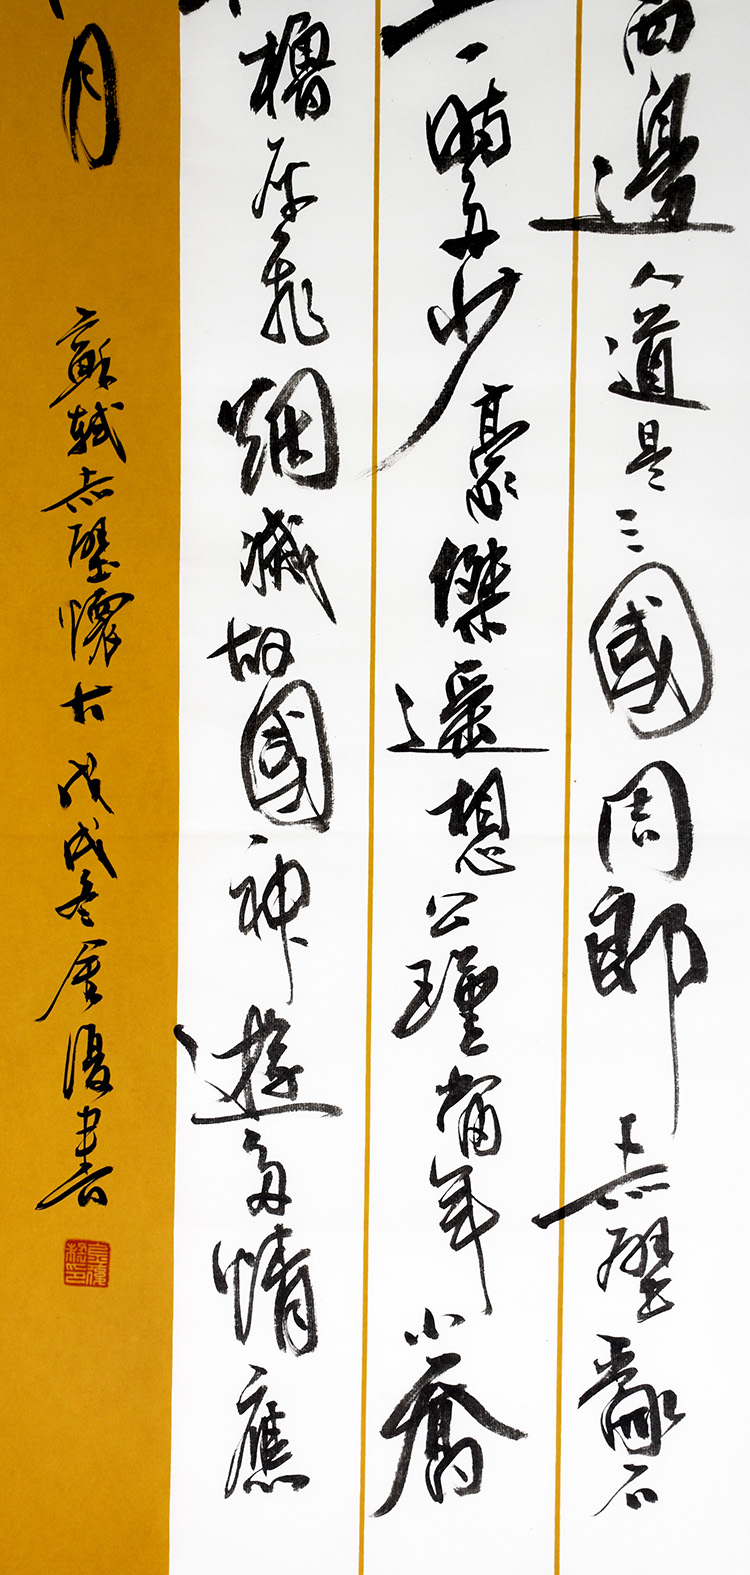 西邊人道是三國周郎赤壁亂石
一時多少豪傑遙想公瑾當年小喬
櫓灰飛烟滅故國神遊多情應
月
蘇軾赤壁懷古戊戌冬優書